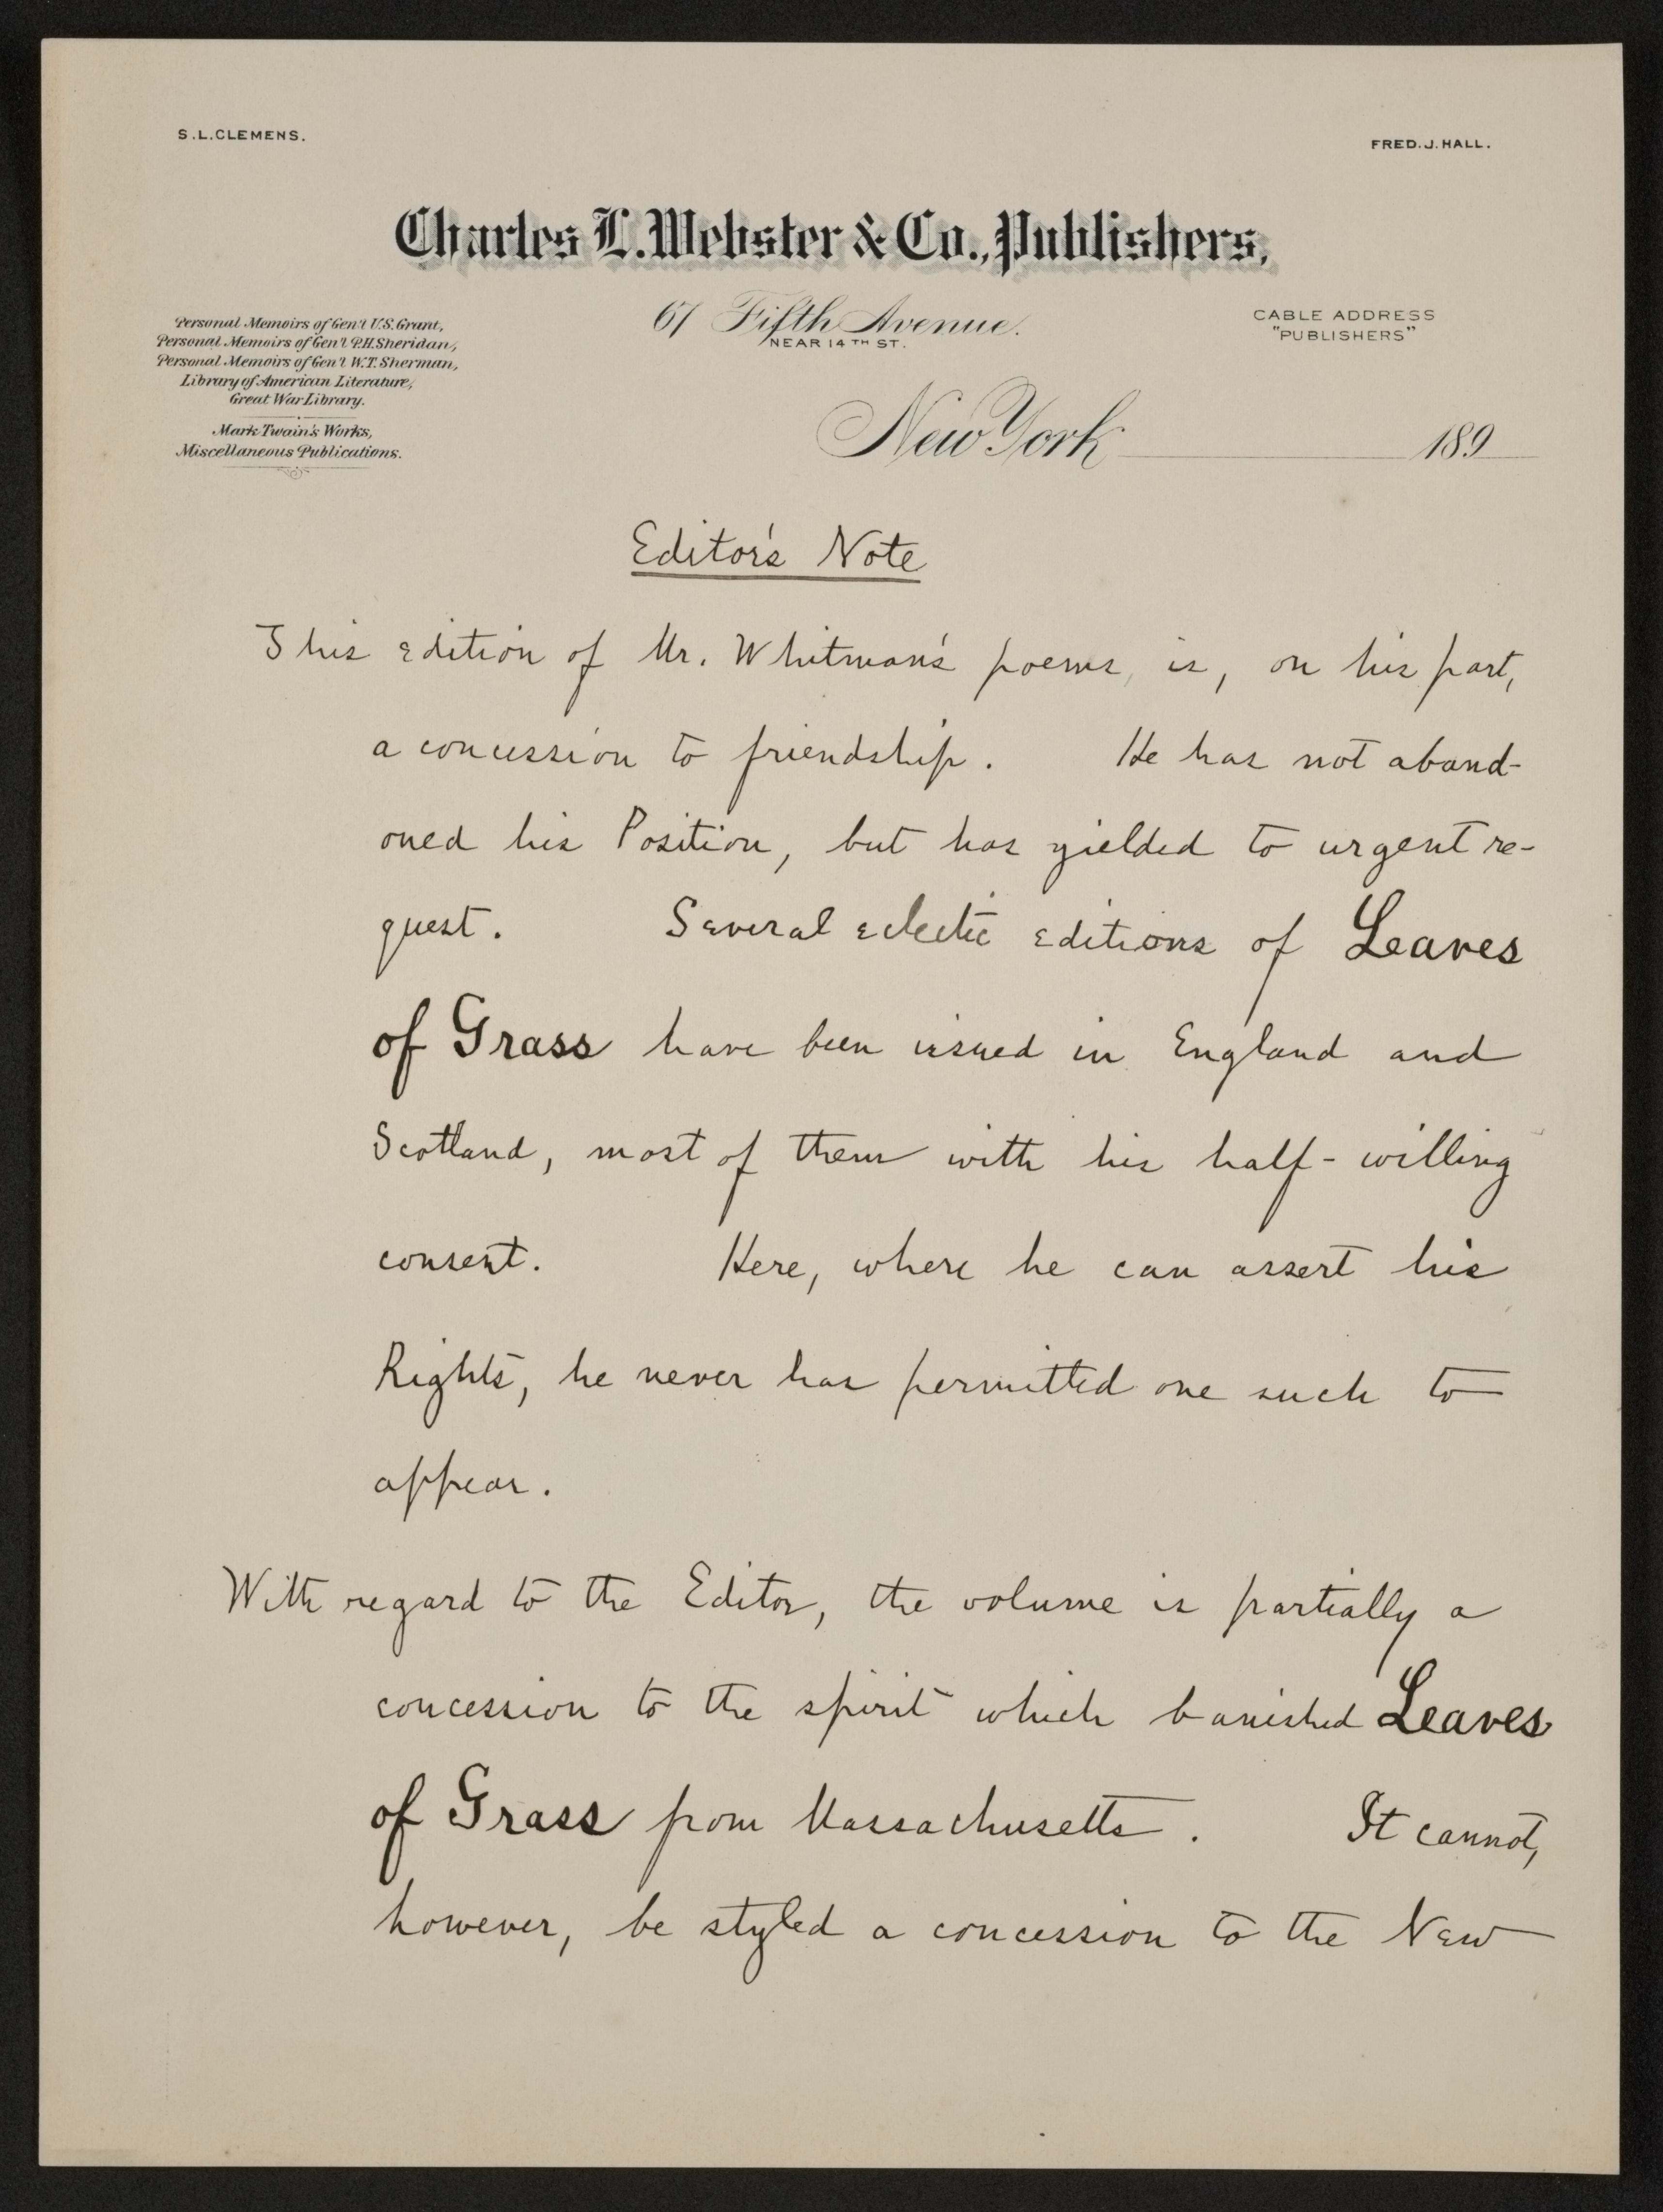 S.L.CLEMENS.
FRED.J.HALL.
Charles L. Webster & Co., Publishers,
67 Fifth Avenue.
NEAR 14TH ST.
CABLE ADDRESS
"PUBLISHERS"
Personal Memoirs of Gen'l U.S. Grant,
Personal Memoirs of Gen'l P.H. Sheridan,
Personal Memoirs of Gen'l W.T. Sherman,
Library of American Literature,
Great War Library.
Mark Twain's Works,
Miscellaneous Publications.
New York 189
Editor's Note
This edition of Mr. Whitman's poems, is, on his part,
a concession to friendship. He has not aband-
oned his Position, but has yielded to urgent re-
quest. Several eclectic editions of Leaves
of Grass have been issued in England and
Scotland, most of them with his half-willing
consent. Here, where he can assert his
Rights, he never has permitted one such to
appear.
With regard to the Editor, the volume is partially a
concession to the spirit which banished Leaves
of Grass from Massachusetts. It cannot,
however, be styled a concession to the New